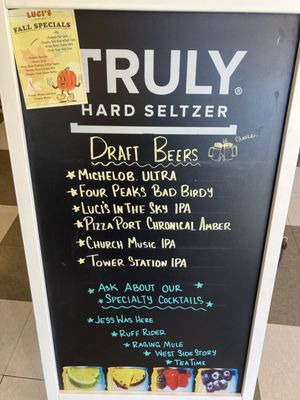 LUCI'S
FALL SPECIALS
TRULY®
HARD SELTZER
DRAFT BEERS
Cheers!
MICHELOB ULTRA
FOUR PEAKS BAD BIRDY
LUCI'S IN THE SKY IPA
PIZZA PORT CHRONICAL AMBER
CHURCH MUSIC IPA
TOWER STATION IPA
ASK ABOUT OUR
SPECIALTY COCKTAILS
JESS WAS HERE
RUFF RIDER
RAGING MULE
WEST SIDE STORY
TEA TIME